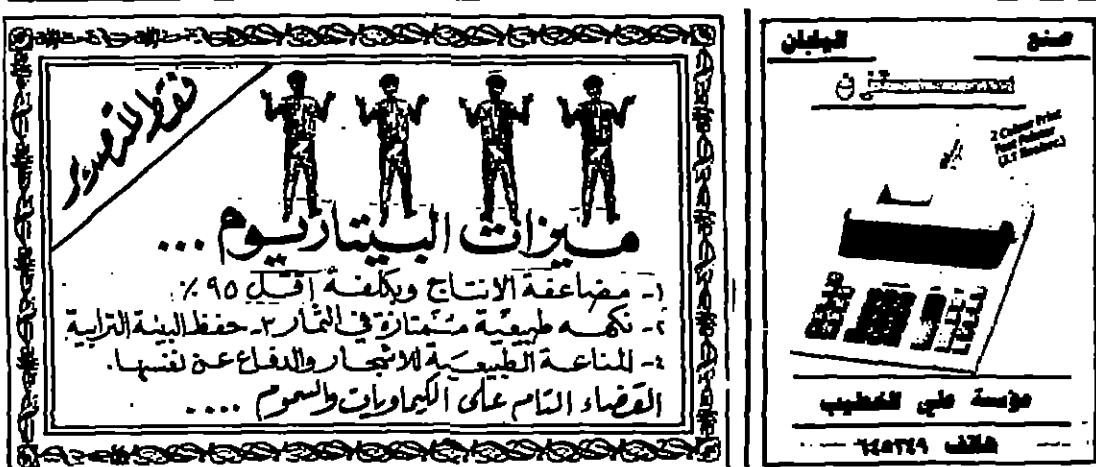 فقط للتصدير
ميزات البيتاريوم ...
١- مضاعفة الانتاج وبكلفة أقل ٩٥ ٪
٢- نكهه طبيعية متمتازة في الثمار ٣- حفظ البيئة الترابية
٤- المناعة الطبيعية للاشجار والدفاع عن نفسها.
القضاء التام على الكيماويات والسموم ....
صنع اليابان
2 Colour Print
مؤسسة علي الخطيب
هاتف ٦٤٥٢٤٩